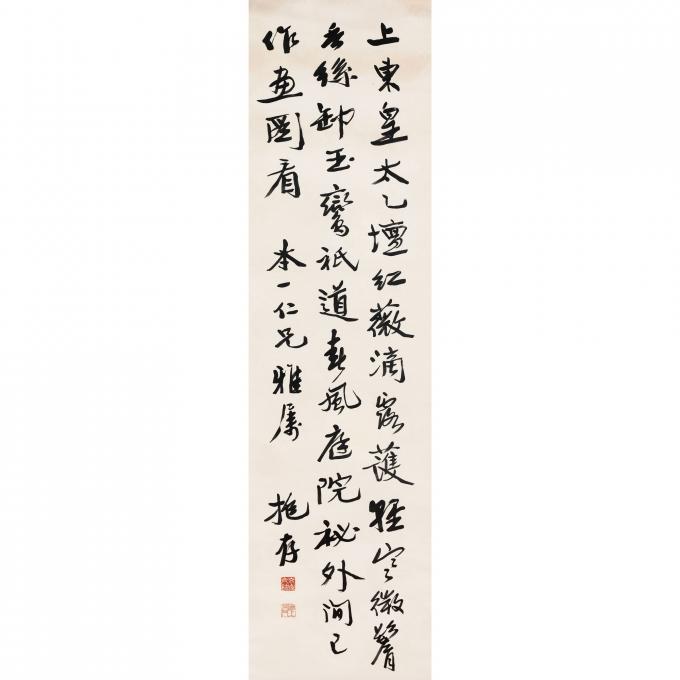 上東皇太乙壇紅薇滴露護輕寒微鬌
香絲卸玉鸞祇道春風庭院祕外間已
作畫圖看 本一仁兄雅屬 抱存